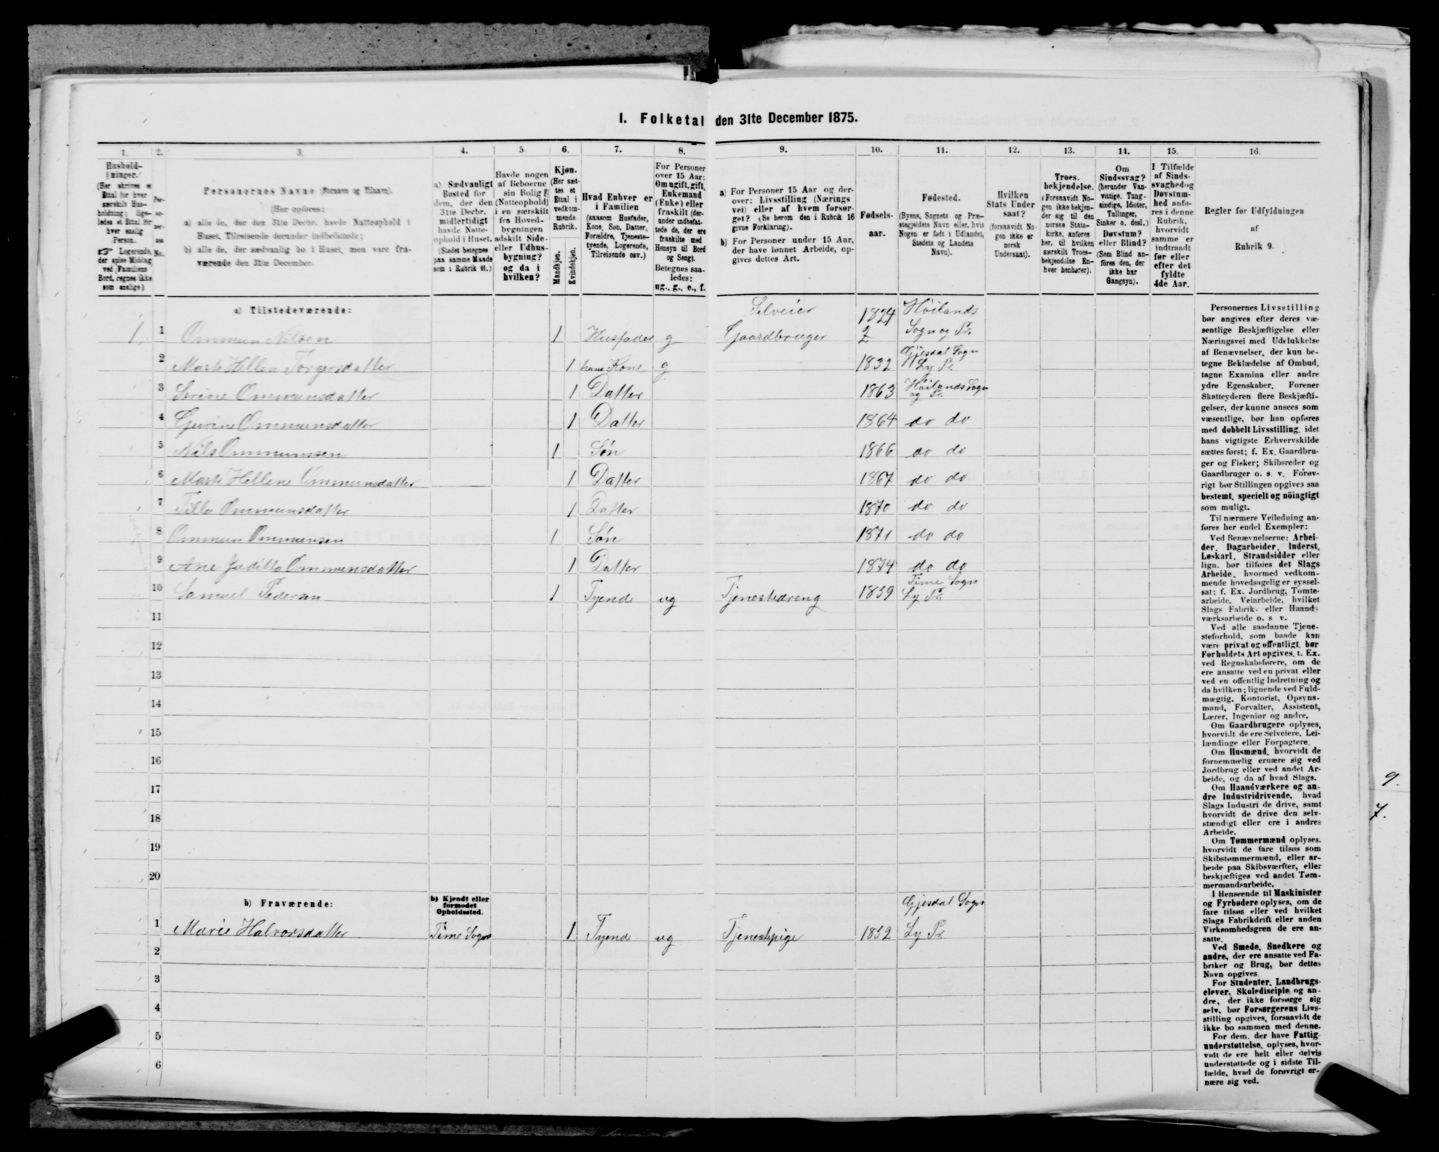 1. Folketal den 31te December 1875.
1. 2. 3. 4. 5. 6. 7. 8. 9. 10. 11. 12. 13. 14. 15. 16.
Personernes Navne (Fornavn og Tilnavn).
(Her opføres:
a) alle de, der den 31te Decbr. havde Natteophold i
Huset, Tilreisende derunder indbefattede;
b) alle de, der sædvanlig bo i Huset, men vare fra-
værende den 31te December.
a) Sædvanligt
Bosted for
dem, der den
31te Decbr.
midlertidigt
havde Natte-
ophold i Huset.
Havde nogen
af Beboerne
sin Bolig
(Natteophold)
i en særskilt
fra Hoved-
bygningen
adskilt Side-
eller Udhus-
bygning?
og da i
hvilken?
Kjøn.
Mandkjøn. Kvindekjøn.
Hvad Enhver er
i Familien
(saasom Husfader,
Kone, Søn, Datter,
Forældre, Tjeneste-
tyende, Logerende,
Tilreisende osv.)
For Personer
over 15 Aar:
Om ugift, gift,
Enkemand
(Enke) eller
fraskilt
Betegnes saa-
ledes:
ug., g., e., f.
a) For Personer 15 Aar og der-
over: Livsstilling (Nærings
vei) eller af hvem forsør-
get? (Se herom den i Rubrik 16
givne Forklaring).
b) For Personer under 15 Aar,
der have lønnet Arbeide, op-
gives dettes Art.
Fødsels-
aar.
Fødested.
(Byens, Sognets og Præ-
stegjeldets Navn eller, hvis
Nogen er født i Udlandet,
Stedets og Landets
Navn).
Hvilken
Stats Under
saat?
(forsaavidt No-
gen ikke er
norsk
Undersaat).
Troes-
bekjendelse.
(Forsaavidt No-
gen ikke bekjen-
der sig til den
norske Stats-
kirke, anføres
her, til hvilken
særskilt Troes-
bekjendelse En-
hver henhører).
Om
Sindssvag?
(herunder Van-
vittige, Tung-
sindige, Idioter,
Tullinger,
Sinker o. desl.)
Døvstum?
eller Blind?
(Som Blind an-
føres den, der
ikke har
Gangsyn).
I Tilfælde
af Sinds-
svaghed og
Døvstum-
hed anfø-
res i denne
Rubrik,
hvorvidt
samme er
indtraadt
før eller
efter det
fyldte
4de Aar.
Regler før Udfyldningen
af
Rubrik 9.
a) Tilstedeværende:
1 1 Ommun Nilsen 1 Husfader g Selveier Gaardbruger 1824 Höilands Sogn og Pr.
2 Marte Hellen Torgersdatter 1 hans Kone g 1832 Gjesdal Sogn Ly Pr.
3 Serine Ommunsdatter 1 Datter 1863 Höilands Sogn og Pr.
4 Gurine Ommunsdatter 1 Datter 1864 do do
5 Nils Ommunssen 1 Søn 1866 do do
6 Marte Hellene Ommunsdatter 1 Datter 1867 do do
7 Tilla Ommunsdatter 1 Datter 1870 do do
8 Ommun Ommunsen 1 Søn 1871 do do
9 Ane Juditta Ommunsdatter 1 Datter 1874 do do
10 Samuel Pedersen 1 Tyende ug Tjenestedreng 1859 Time Sogn Ly Pr.
11
12
13
14
15
16
17
18
19
20
b) Fraværende:
b) Kjendt eller
formodet
Opholdssted.
1 Marie Halvorsdatter Time Sogn 1 Tyende ug Tjenestepige 1852 Gjesdal Sogn Ly Pr.
2
3
4
5
6
Personernes Livsstilling
bør angives efter deres væ-
sentlige Beskjæftigelse eller
Næringsvei med Udelukkelse
af Benævnelser, der kun be-
tegne Beklædelse af Ombud,
tagne Examina eller andre
ydre Egenskaber. Forener
Skatteyderen flere Beskjæfti-
gelser, der kunne ansees som
væsentlige, bør han opføres
med dobbelt Livsstilling, idet
hans vigtigste Erhvervskilde
sættes først; f. Ex. Gaardbru-
ger og Fisker; Skibsreder og
Gaardbruger o. s. v. Forøv-
rigt bør Stillingen opgives saa
bestemt, specielt og nöiagtigt
som muligt.
Til nærmere Veiledning an-
føres her endel Exempler:
Ved Benævnelserne: Arbei-
der, Dagarbeider, Inderst,
Løskarl, Strandsidder eller
lign. bør tilføies det Slags
Arbeide, hvormed vedkom-
mende hovedsagelig er syssel-
sat; f. Ex. Jordbrug, Tomte-
arbeide, Veiarbeide, hvilket
Slags Fabrik- eller Haand-
værksarbeide o. s. v.
Ved alle saadanne Tjene-
steforhold, som baade kan
være privat og offentligt, bør
Forholdets Art opgives, t. Ex.
ved Regnskabsførere, om de
ere ansatte ved en privat eller
ved en offentlig Indretning og
da hvilken; lignende ved Fuld-
mægtig, Kontorist, Opsyns-
mand, Forvalter, Assistent,
Lærer, Ingeniør og andre.
Om Gaardbrugere oplyses,
hvorvidt de ere Selveiere, Lei-
lændinge eller Forpagtere.
Om Husmænd, hvorvidt de
fornemmelig ernære sig ved
Jordbrug eller ved andet Ar-
beide, og da af hvad Slags.
Om Haandværkere og an-
dre Industridrivende, hvad
Slags Industri de drive, samt
hvorvidt de drive den selv-
stændigt eller ere i andres
Arbeide.
Om Tømmermænd oplyses,
hvorvidt de fare tilsøs som
Skibstømmermænd, eller ar-
beide paa Skibsværfter, eller
beskjæftiges ved andet Tøm-
mermandsarbeide.
I Henseende til Maskinister
og Fyrbødere oplyses, om de
fare tilsøs eller ved hvilket
Slags Fabrikdrift eller anden
Virksomhedsgren de ere an-
satte.
Ved Smede, Snedkere og
andre, der ere ansatte ved Fa-
briker og Brug, bør dettes
Navn opgives.
For Studenter, Landbrugs-
elever, Skoledisciple og an-
dre, der ikke forsørge sig
selv, bør Forsørgerens Livs-
stilling opgives, forsaavidt de
ikke bo sammen med denne.
For dem, der have Fattig-
understøttelse, oplyses, hvor-
vidt de ere helt eller delvis
understøttede og i sidste Til-
fælde, hvad de forøvrigt er-
nære sig ved.
9.
7.